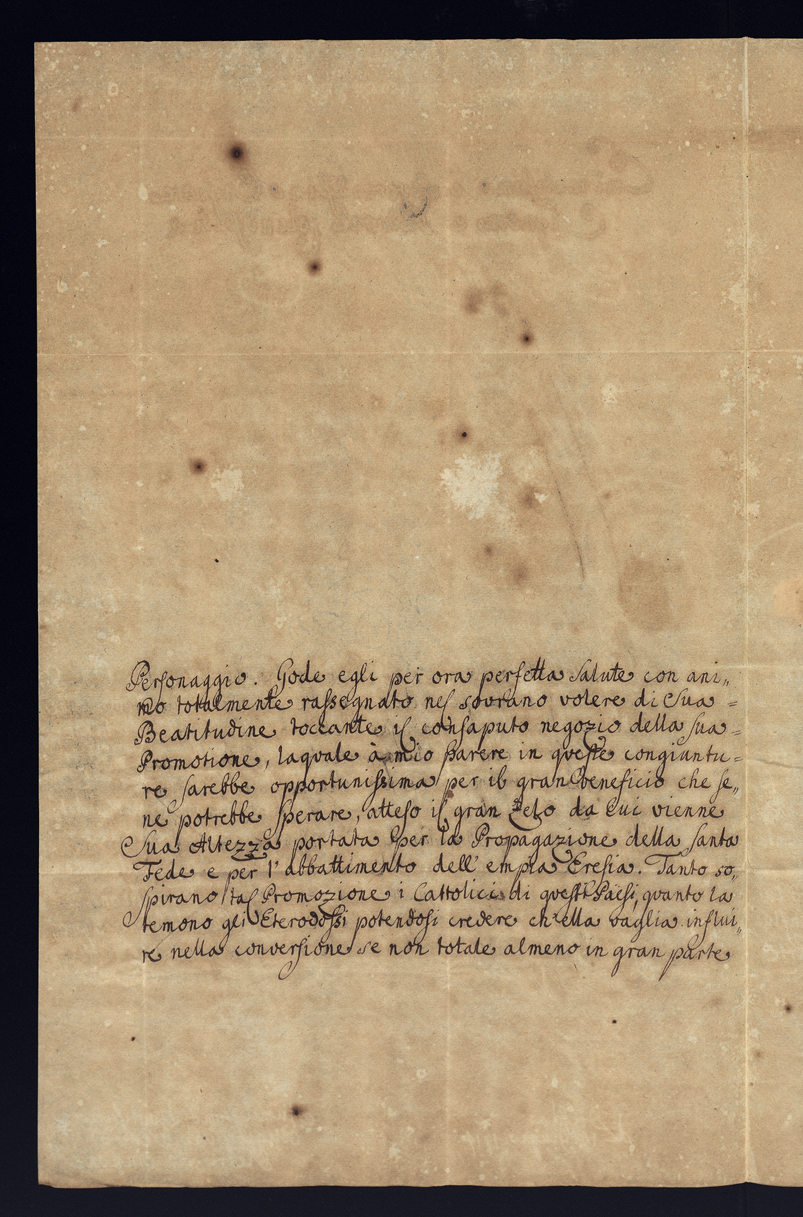 Personaggio. Gode egli per ora perfetta salute con ani„
mo totalmente rassegnato nel sovrano volere di Sua =
Beatitudine toccante il consaputo negozio della sua =
Promotione, laquale à mio parere in queste congiuntu=
re sarebbe opportunissima per il gran beneficio che se„
ne potrebbe sperare, atteso il gran Zelo da cui vienne
Sua Altezza portata per la Propagazione della Santa
Fede e per l'abbattimento dell'empia Eresia. Tanto so„
spirano tal Promozione i Cattolici di questi Paesi, quanto la
temono gli Eterodossi potendosi credere ch'ella vaglia influi„
re nella conversione se non totale almeno in gran parte